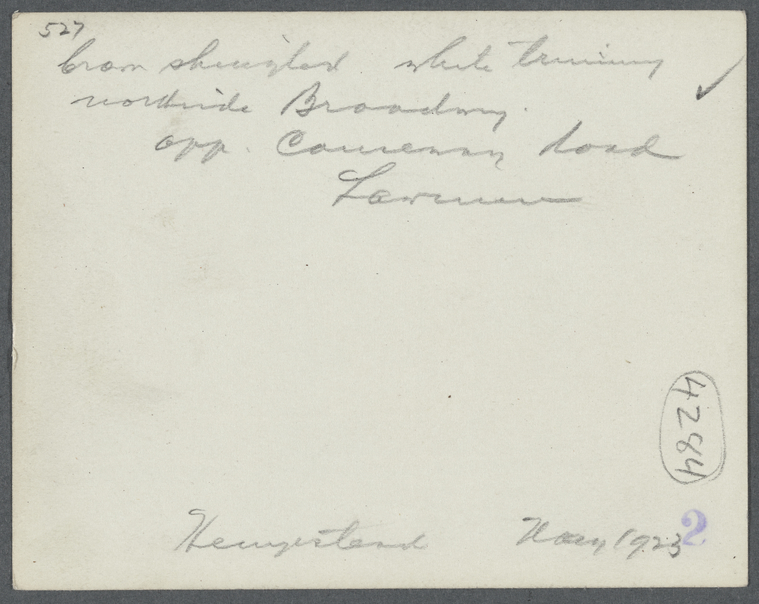 527
brown shingled white trimming
northside Broadway.
opp. Causeway Road
Lawrence
4284
Hempstead May 1923
2